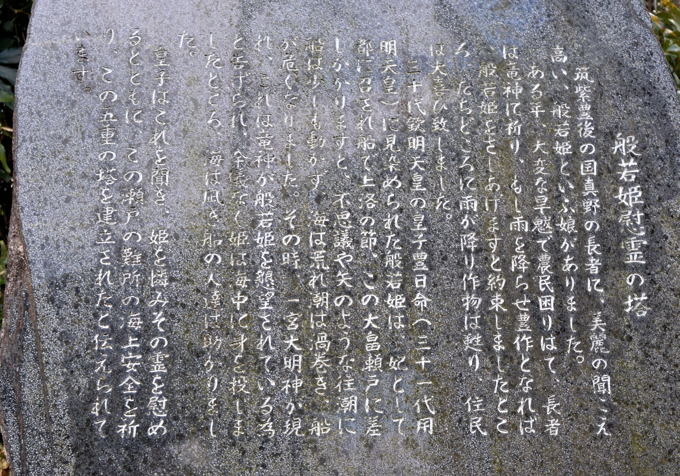 般若姫慰霊の塔
筑紫豊後の国真野の長者に、美麗の聞こえ
高い、般若姫といふ娘がありました。
ある年、大変な旱魃で農民困りはて、長者
は竜神に祈り、もし雨を降らせ豊作となれば
般若姫をさしあげますと約束しましたとこ
ろ、たちどころに雨が降り作物は甦り、住民
は大喜び致しました。
三十代欽明天皇の皇子豊日命(三十一代用
明天皇)に見染められた般若姫は、妃として
都に召され船で上洛の節、この大畠頼戸に差
しかかりますと、不思議や矢のような往潮に
船は少しも動かず、海は荒れ潮は渦巻き、船
が危くなりました。その時、一宮大明神が現
れ、これは竜神が般若姫を懇望されている為
と告げられ、余儀なく姫は海中に身を投しま
したところ、海は凪ぎ船の人達は助かりまし
た。
皇子はこれを聞き、姫を憐みその霊を慰め
るとともに、この瀬戸の難所の海上安全を祈
り、この五重の塔を建立されたと伝えられて
います。